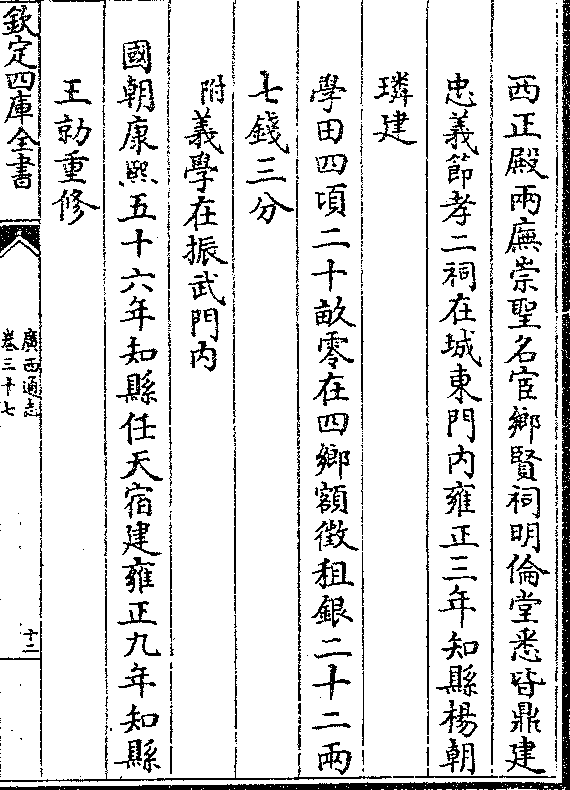 西正殿兩廡崇聖名宦鄉賢祠明倫堂悉皆鼎建
忠義節孝二祠在城東門内雍正三年知縣楊朝
璘建
學田四項二十畝零在四鄉額徴租銀二十二兩
七錢三分
附義學在振武門内
國朝康熙五十六年知縣任天宿建雍正九年知縣
王勍重修
欽定四庫全書
廣西通志
卷三十七
十二